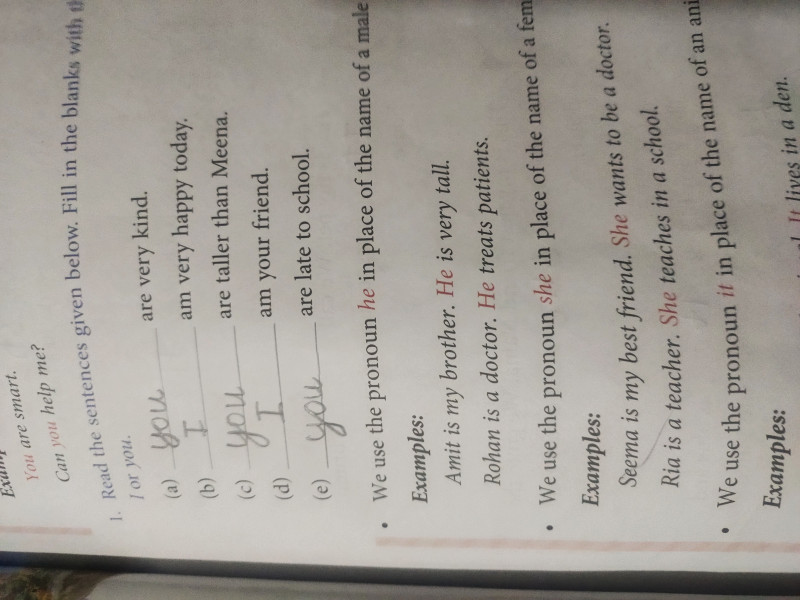 You are smart.
Can you help me?
1. Read the sentences given below. Fill in the blanks with
I or you.
(a) you are very kind.
(b) I am very happy today.
(c) you are taller than Meena.
(d) I am your friend.
(e) you are late to school.
• We use the pronoun he in place of the name of a male
Examples:
Amit is my brother. He is very tall.
Rohan is a doctor. He treats patients.
• We use the pronoun she in place of the name of a fem
Examples:
Seema is my best friend. She wants to be a doctor.
Ria is a teacher. She teaches in a school.
• We use the pronoun it in place of the name of an ani
Examples:
It lives in a den.